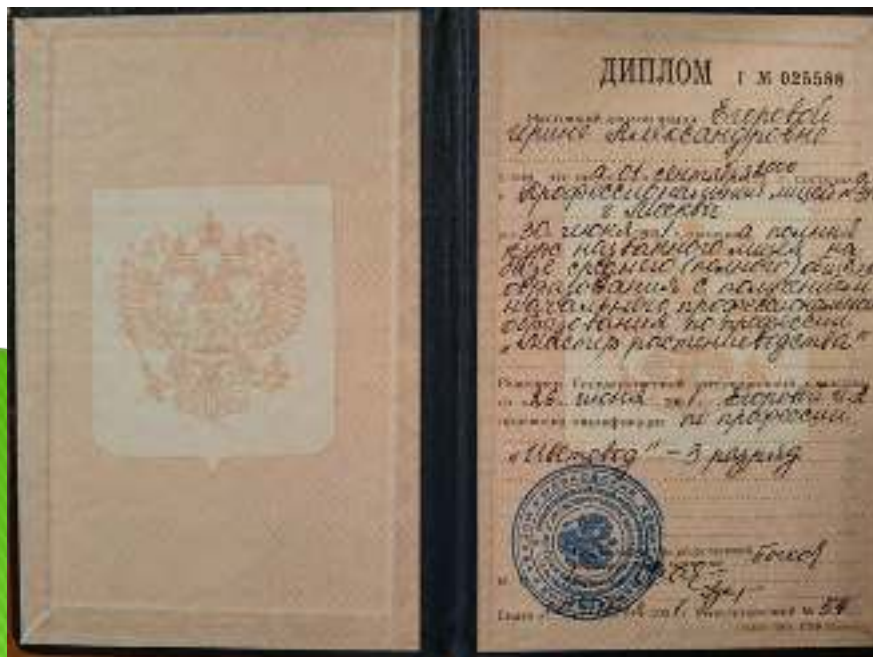 ДИПЛОМ I № 025588
Настоящий диплом выдан Егоровой
Ирине Александровне
в том, что он а 01 сентября 2000
Профессиональный лицей №
г. Москвы
30 июня а полный
курс названного лицея на
базе среднего (полного) общего
образования с получением
начального профессионального
образования по профессии
„Мастер растениеводства"
Решением Государственной аттестационной комиссии
от 26 июня Егоровой И.А.
присвоена квалификация по профессии
„Цветовод" – 3 разряд
№ 54